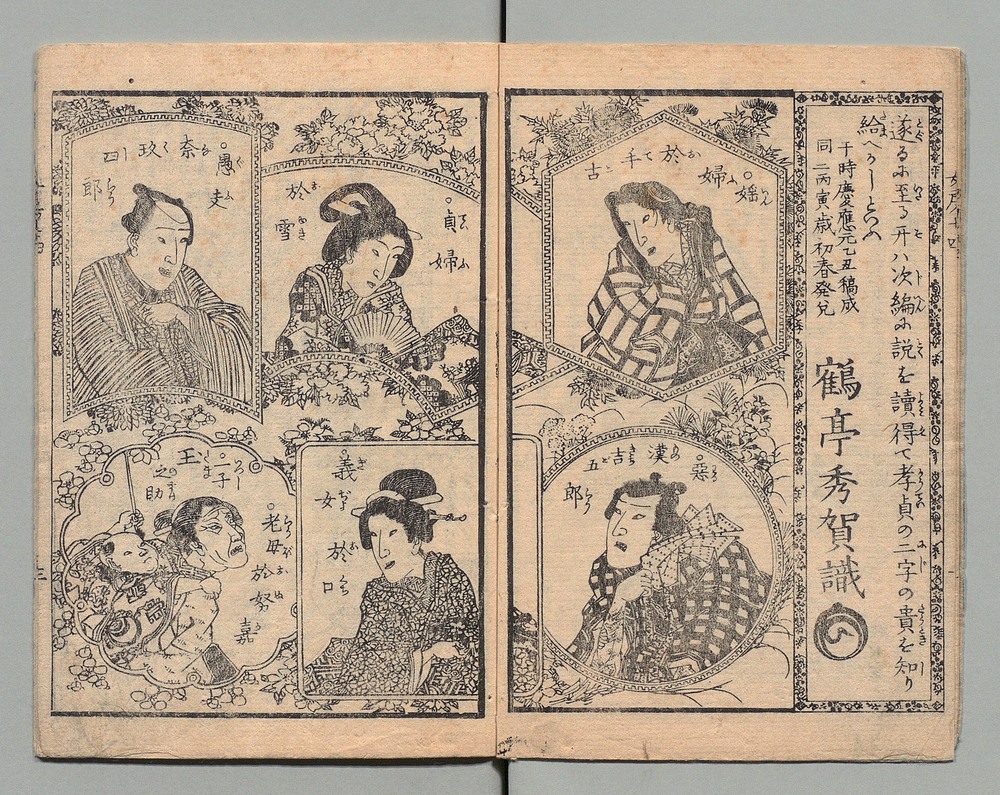 遂るに至る开ハ次編に説を讀得て孝貞の二字の貴きを知り
給へかしといふ
于時慶應元乙丑稿成
同二丙寅歳初春發兌
鶴亭秀賀識
婬婦
於手古
悪漢
吉五郎
貞婦
於雪
愚夫
奈玖四郎
義女
於口
一子
玉之助
老母
於努嘉